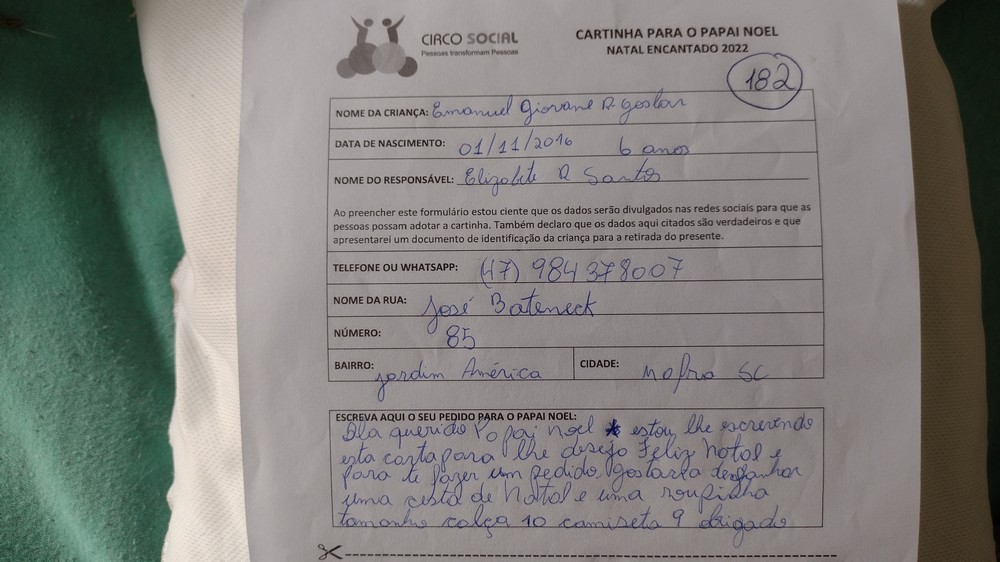 CIRCO SOCIAL
Pessoas transformam Pessoas
CARTINHA PARA O PAPAI NOEL
NATAL ENCANTADO 2022
182
NOME DA CRIANÇA: Emanuel Giovane R. goslar
DATA DE NASCIMENTO: 01/11/2016 6 anos
NOME DO RESPONSÁVEL: Elizabete R Santos
Ao preencher este formulário estou ciente que os dados serão divulgados nas redes sociais para que as
pessoas possam adotar a cartinha. Também declaro que os dados aqui citados são verdadeiros e que
apresentarei um documento de identificação da criança para a retirada do presente.
TELEFONE OU WHATSAPP: (47) 984378007
NOME DA RUA: José Bateneck
NÚMERO: 85
BAIRRO: jardim América CIDADE: Mafra SC
ESCREVA AQUI O SEU PEDIDO PARA O PAPAI NOEL:
Ola querido Papai noel estou lhe escrevendo
esta carta para lhe desejo Feliz Natal e
para te fazer um pedido. gostaria de ganhar
uma cesta de Natal e uma roupinha
tamanho calça 10 camiseta 9 obrigado